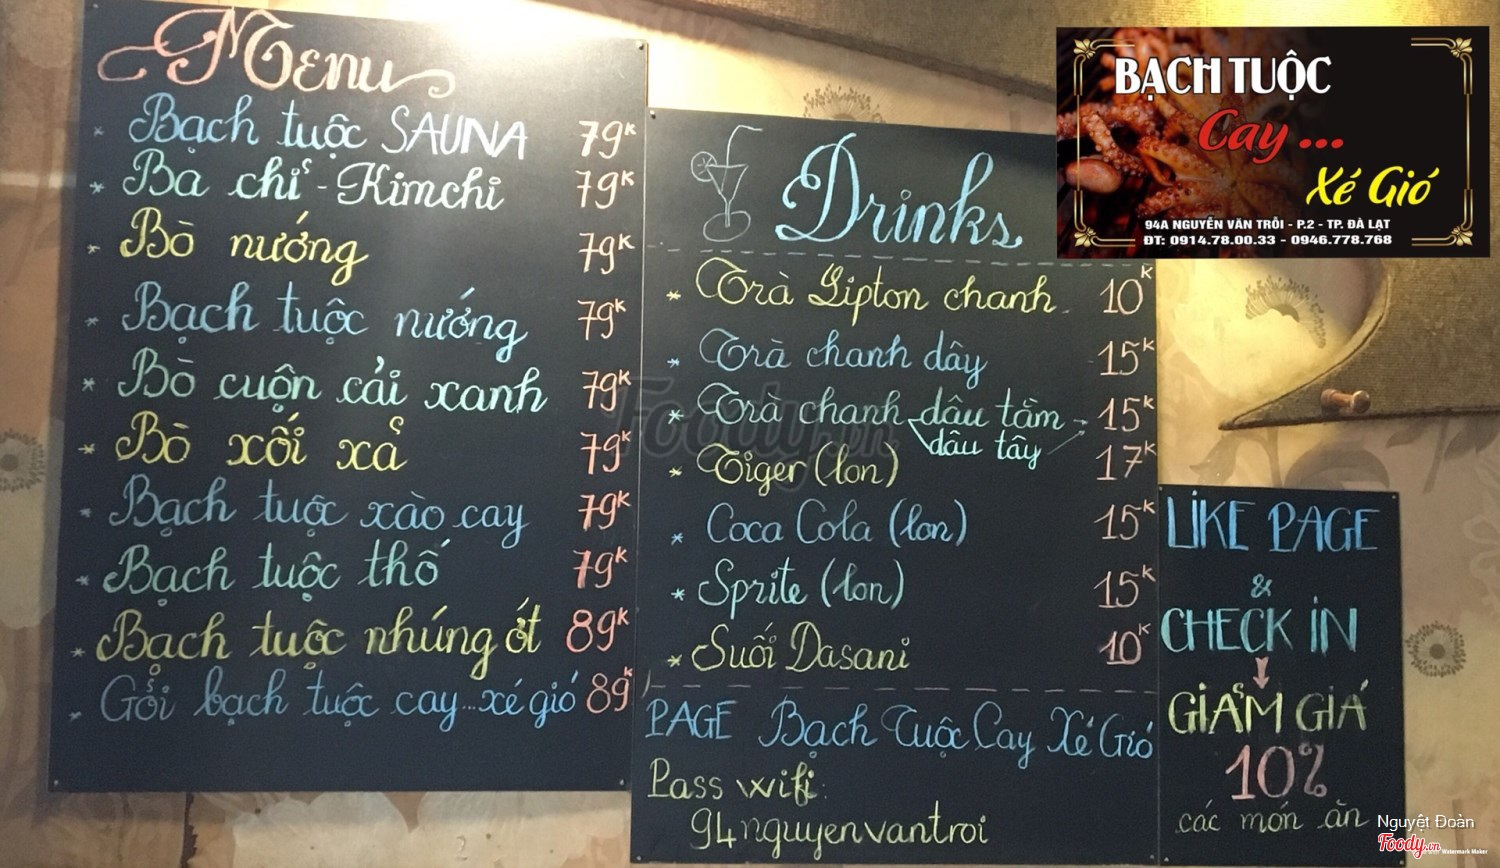 Menu
* Bạch tuộc SAUNA 79K
* Ba chỉ - Kimchi 79K
* Bò nướng 79K
* Bạch tuộc nướng 79K
* Bò cuộn cải xanh 79K
* Bò xối xả 79K
* Bạch tuộc xào cay 79K
* Bạch tuộc thố 79K
* Bạch tuộc nhúng ớt 89K
* Gỏi bạch tuộc cay...xé gió 89K
Drinks
* Trà Lipton chanh 10K
* Trà chanh dây 15K
* Trà chanh dâu tằm 15K
dâu tây
* Tiger (lon) 17K
* Coca Cola (lon) 15K
* Sprite (lon) 15K
* Suối Dasani 10K
PAGE Bạch Tuộc Cay Xé Gió
Pass wifi:
94nguyenvantroi
BẠCH TUỘC
Cay ...
Xé Gió
94A NGUYỄN VĂN TRỖI - P.2 - TP. ĐÀ LẠT
ĐT: 0914.78.00.33 - 0946.778.768
LIKE PAGE
&
CHECK IN
GIẢM GIÁ
10%
các món ăn
Foody.vn
Nguyệt Đoàn
Foody.vn
Watermark Maker